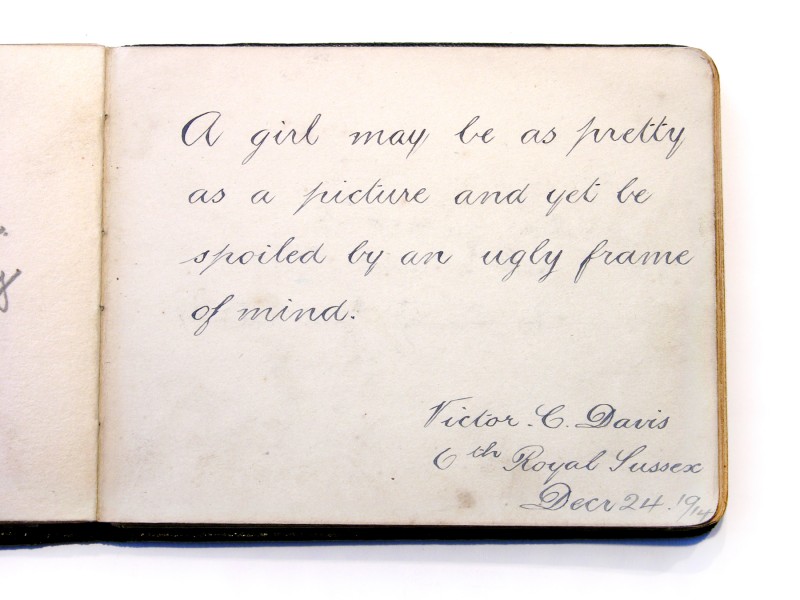 A girl may be as pretty
as a picture and yet be
spoiled by an ugly frame
of mind.
Victor. C. Davis
6th Royal Sussex
Decr 24. 19/14